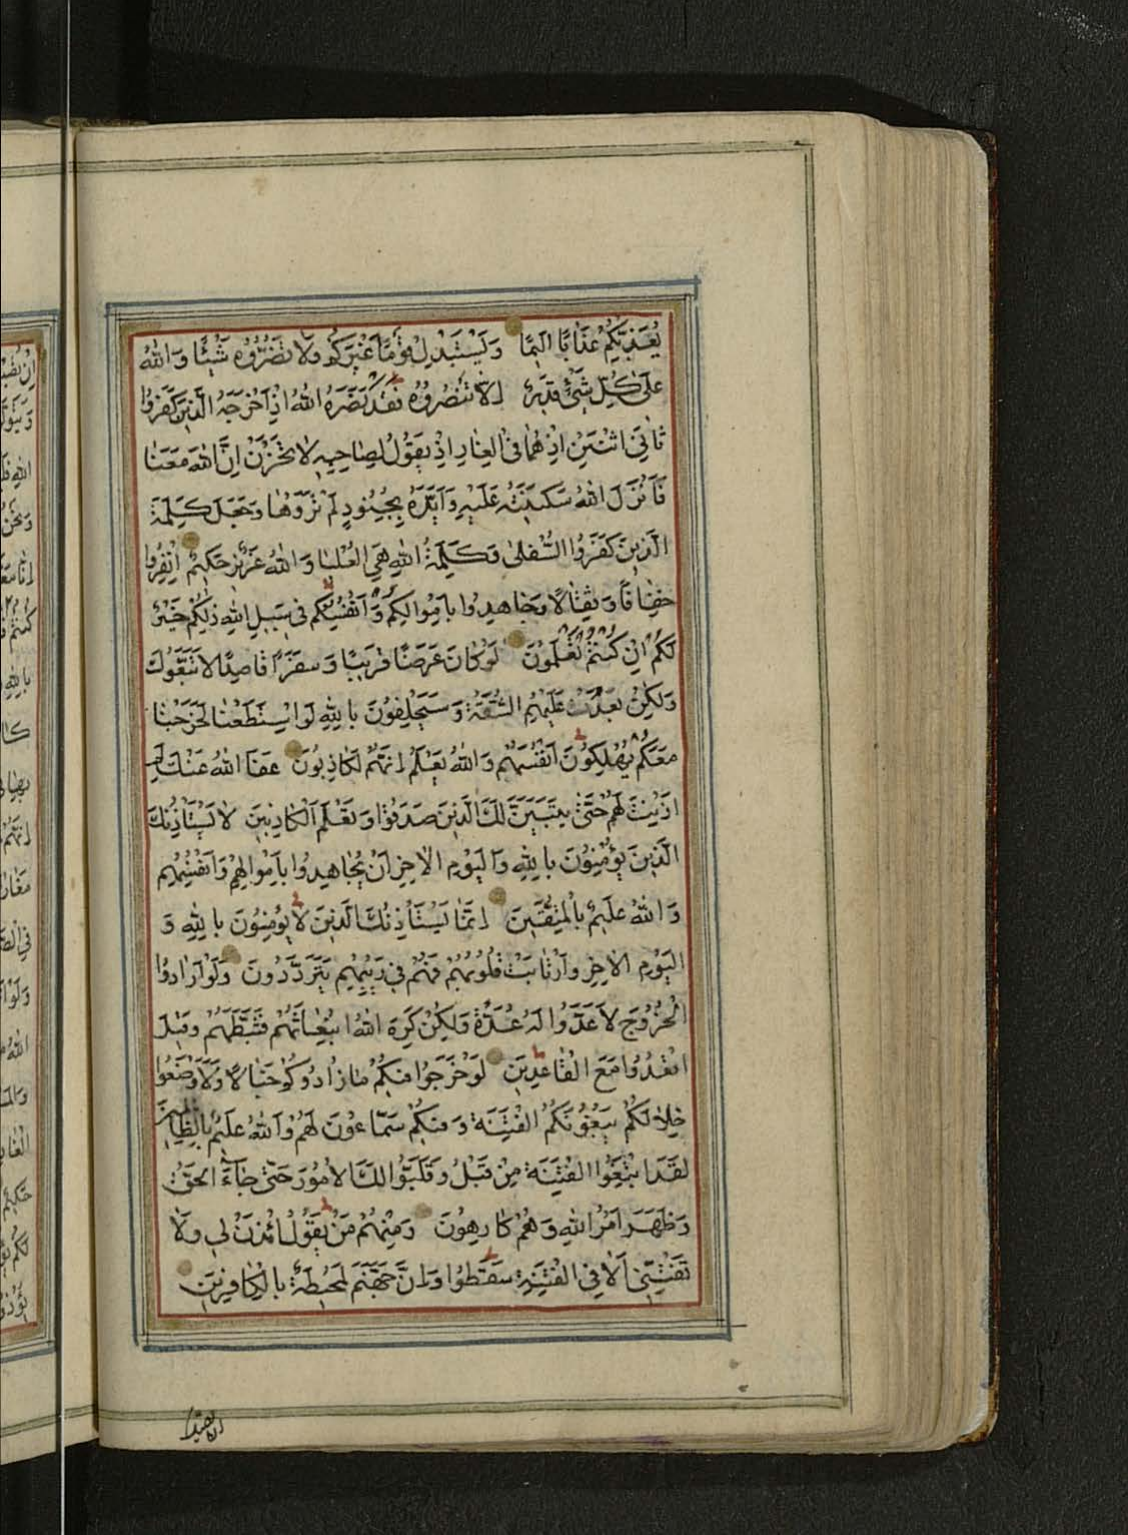 يُعَذِّبْكُمْ عَذَابًا اَلِيمًا وَيَسْتَبْدِلْ قَوْمًا غَيْرَكُمْ وَلَا تَضُرُّوهُ شَيْئًا وَاللهُ
عَلَىٰ كُلِّ شَيْءٍ قَدِيرٌ اِلَّا تَنْصُرُوهُ فَقَدْ نَصَرَهُ اللهُ اِذْ اَخْرَجَهُ الَّذِينَ كَفَرُوا
ثَانِيَ اثْنَيْنِ اِذْ هُمَا فِي الْغَارِ اِذْ يَقُولُ لِصَاحِبِهِ لَا تَحْزَنْ اِنَّ اللهَ مَعَنَا
فَاَنْزَلَ اللهُ سَكِينَتَهُ عَلَيْهِ وَاَيَّدَهُ بِجُنُودٍ لَمْ تَرَوْهَا وَجَعَلَ كَلِمَةَ
الَّذِينَ كَفَرُوا السُّفْلَىٰ وَكَلِمَةُ اللهِ هِيَ الْعُلْيَا وَاللهُ عَزِيزٌ حَكِيمٌ اِنْفِرُوا
خِفَافًا وَثِقَالًا وَجَاهِدُوا بِاَمْوَالِكُمْ وَاَنْفُسِكُمْ فِي سَبِيلِ اللهِ ذٰلِكُمْ خَيْرٌ
لَكُمْ اِنْ كُنْتُمْ تَعْلَمُونَ لَوْ كَانَ عَرَضًا قَرِيبًا وَسَفَرًا قَاصِدًا لَاتَّبَعُوكَ
وَلٰكِنْ بَعُدَتْ عَلَيْهِمُ الشُّقَّةُ وَسَيَحْلِفُونَ بِاللهِ لَوِ اسْتَطَعْنَا لَخَرَجْنَا
مَعَكُمْ يُهْلِكُونَ اَنْفُسَهُمْ وَاللهُ يَعْلَمُ اِنَّهُمْ لَكَاذِبُونَ عَفَا اللهُ عَنْكَ لِمَ
اَذِنْتَ لَهُمْ حَتَّىٰ يَتَبَيَّنَ لَكَ الَّذِينَ صَدَقُوا وَتَعْلَمَ الْكَاذِبِينَ لَا يَسْتَأْذِنُكَ
الَّذِينَ يُؤْمِنُونَ بِاللهِ وَالْيَوْمِ الْاٰخِرِ اَنْ يُجَاهِدُوا بِاَمْوَالِهِمْ وَاَنْفُسِهِمْ
وَاللهُ عَلِيمٌ بِالْمُتَّقِينَ اِنَّمَا يَسْتَأْذِنُكَ الَّذِينَ لَا يُؤْمِنُونَ بِاللهِ وَ
الْيَوْمِ الْاٰخِرِ وَارْتَابَتْ قُلُوبُهُمْ فَهُمْ فِي رَيْبِهِمْ يَتَرَدَّدُونَ وَلَوْ اَرَادُوا
الْخُرُوجَ لَاَعَدُّوا لَهُ عُدَّةً وَلٰكِنْ كَرِهَ اللهُ انْبِعَاثَهُمْ فَثَبَّطَهُمْ وَقِيلَ
اقْعُدُوا مَعَ الْقَاعِدِينَ لَوْ خَرَجُوا فِيكُمْ مَا زَادُوكُمْ اِلَّا خَبَالًا وَلَاَوْضَعُوا
خِلَالَكُمْ يَبْغُونَكُمُ الْفِتْنَةَ وَفِيكُمْ سَمَّاعُونَ لَهُمْ وَاللهُ عَلِيمٌ بِالظَّالِمِينَ
لَقَدِ ابْتَغَوُا الْفِتْنَةَ مِنْ قَبْلُ وَقَلَّبُوا لَكَ الْاُمُورَ حَتَّىٰ جَاءَ الْحَقُّ
وَظَهَرَ اَمْرُ اللهِ وَهُمْ كَارِهُونَ وَمِنْهُمْ مَنْ يَقُولُ ائْذَنْ لِي وَلَا
تَفْتِنِّي اَلَا فِي الْفِتْنَةِ سَقَطُوا وَاِنَّ جَهَنَّمَ لَمُحِيطَةٌ بِالْكَافِرِينَ